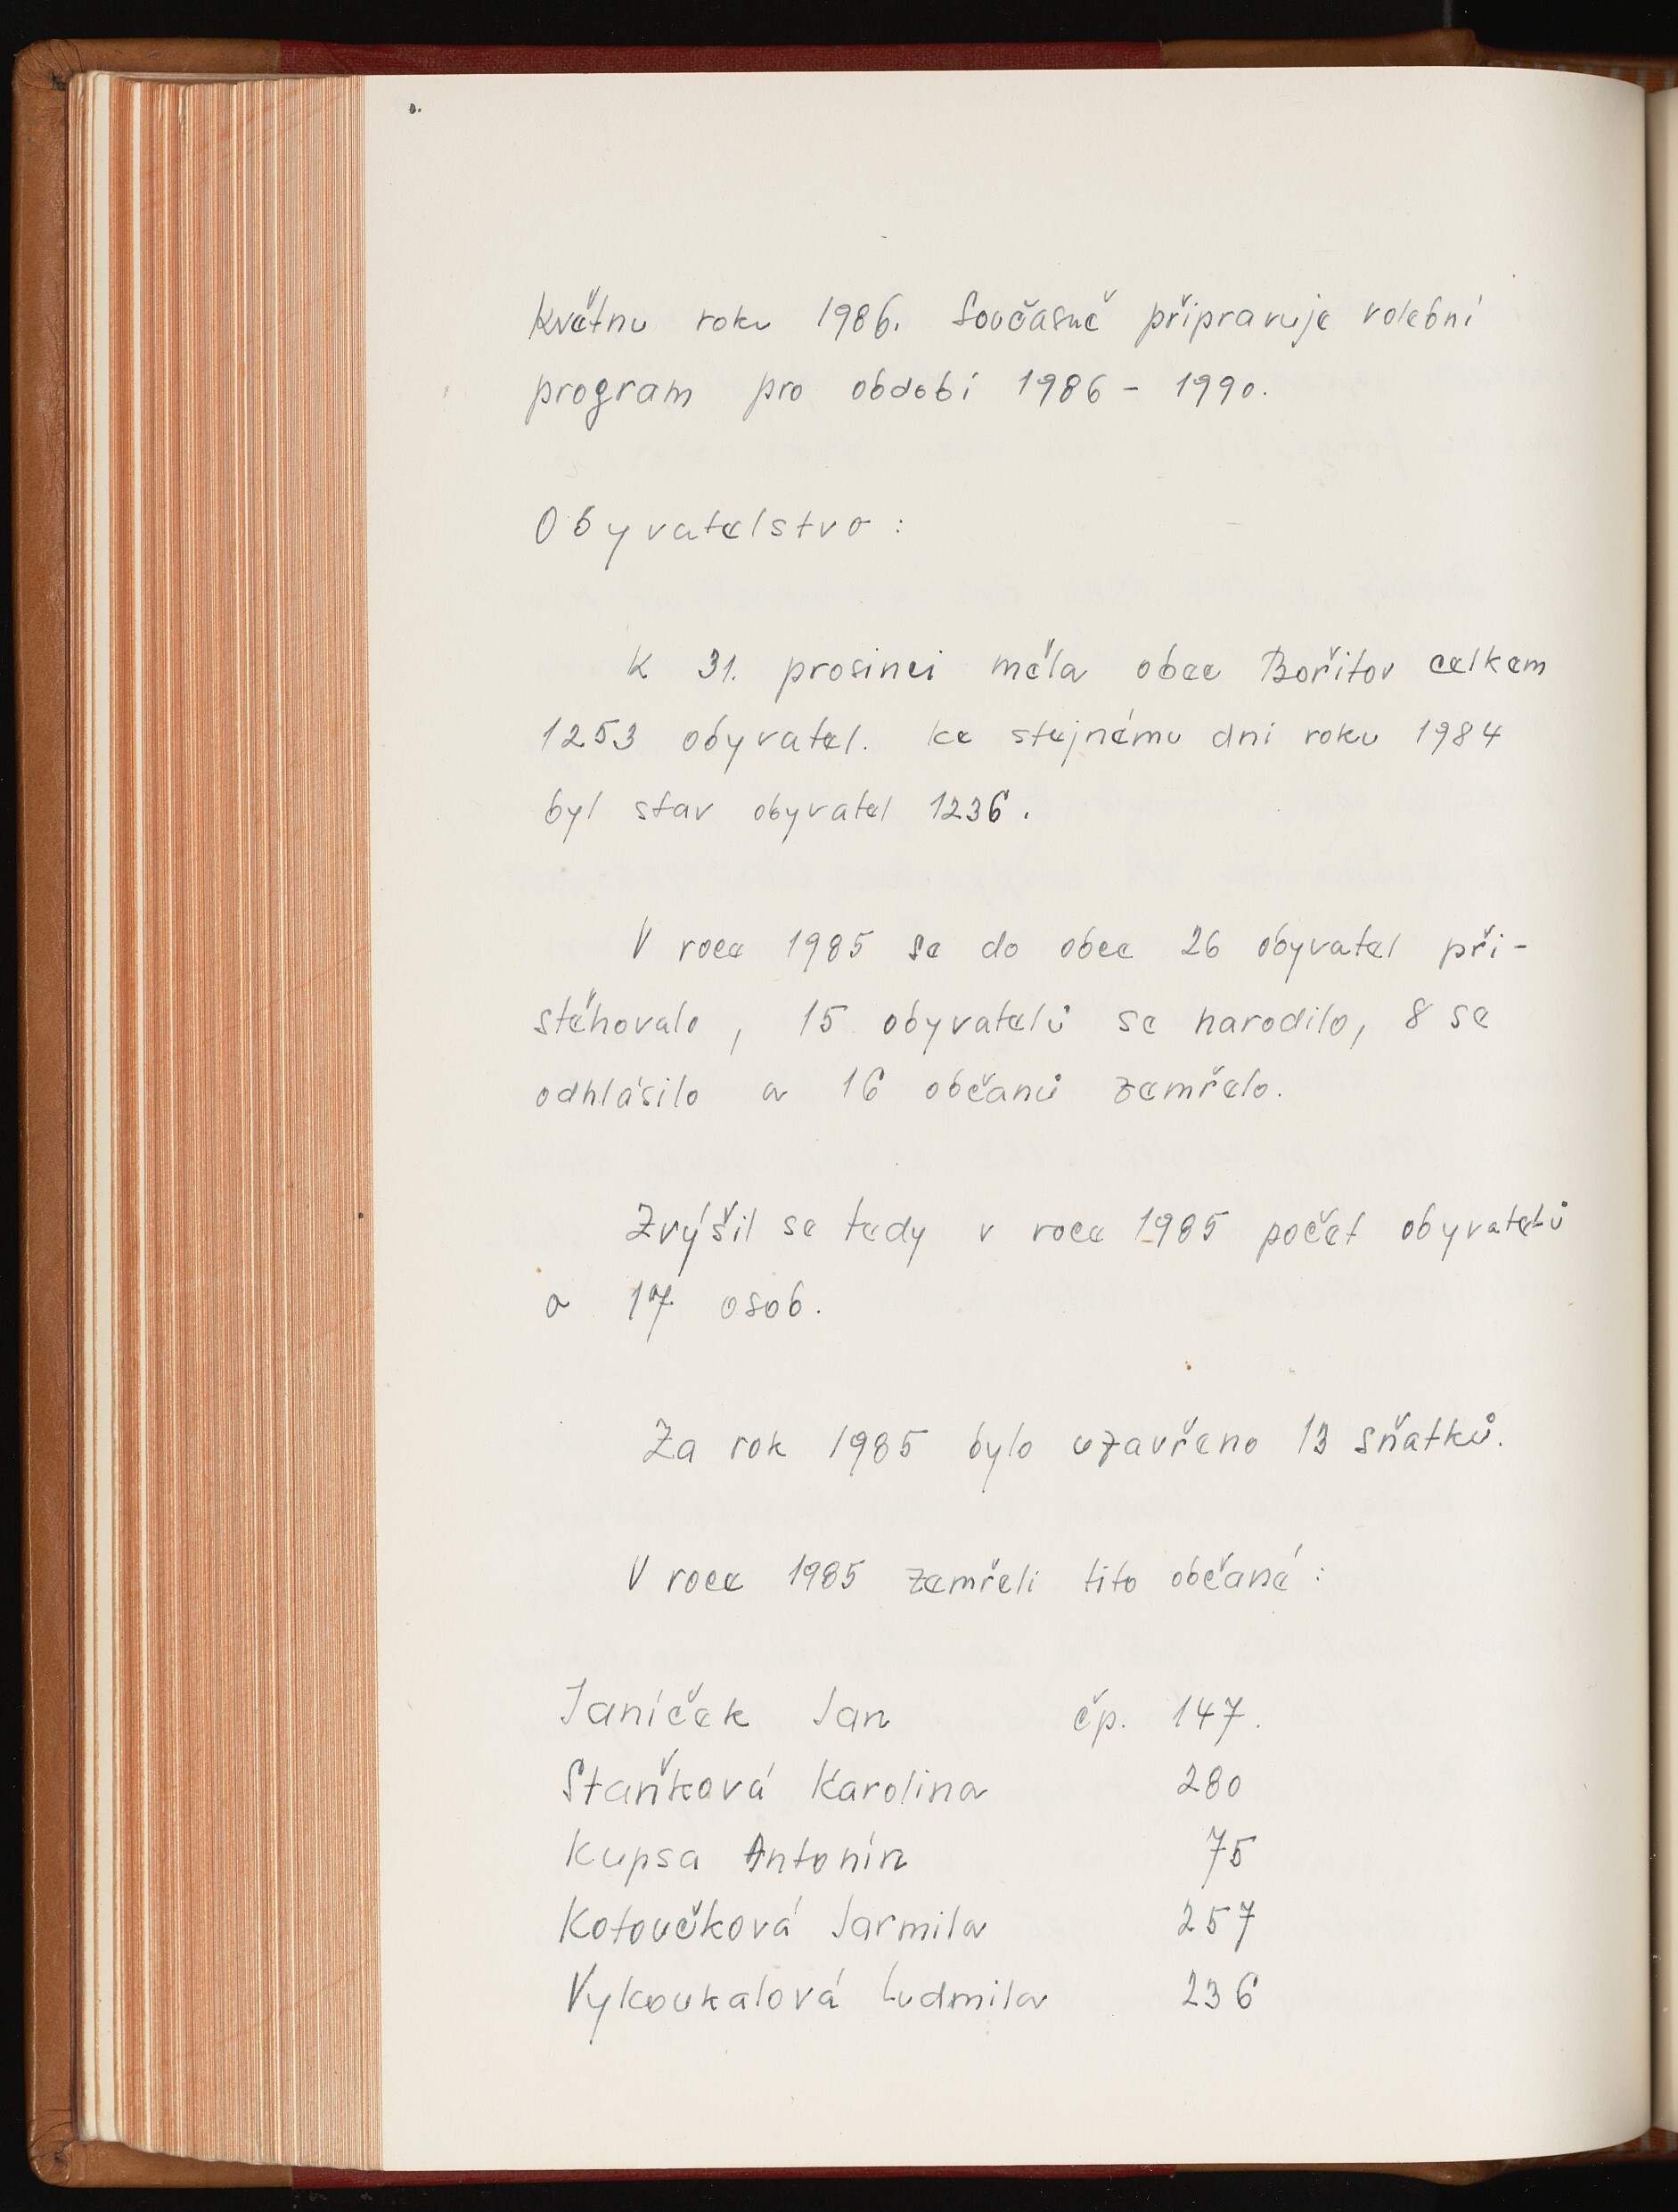 květnu roku 1986. Současně připravuje volební
program pro období 1986 - 1990.
Obyvatelstvo :
K 31. prosinci měla obec Bořitov celkem
1253 obyvatel. Ke stejnému dni roku 1984
byl stav obyvatel 1236.
V roce 1985 se do obce 26 obyvatel při-
stěhovalo, 15 obyvatelů se narodilo, 8 se
odhlásilo a 16 občanů zemřelo.
Zvýšil se tedy v roce 1985 počet obyvatelů
o 17 osob.
Za rok 1985 bylo uzavřeno 13 sňatků.
V roce 1985 zemřeli tito občané :
Janíček Jan čp. 147.
Staňková Karolina 280
Kupsa Antonín 75
Kotoučková Jarmila 257
Vykoukalová Ludmila 236